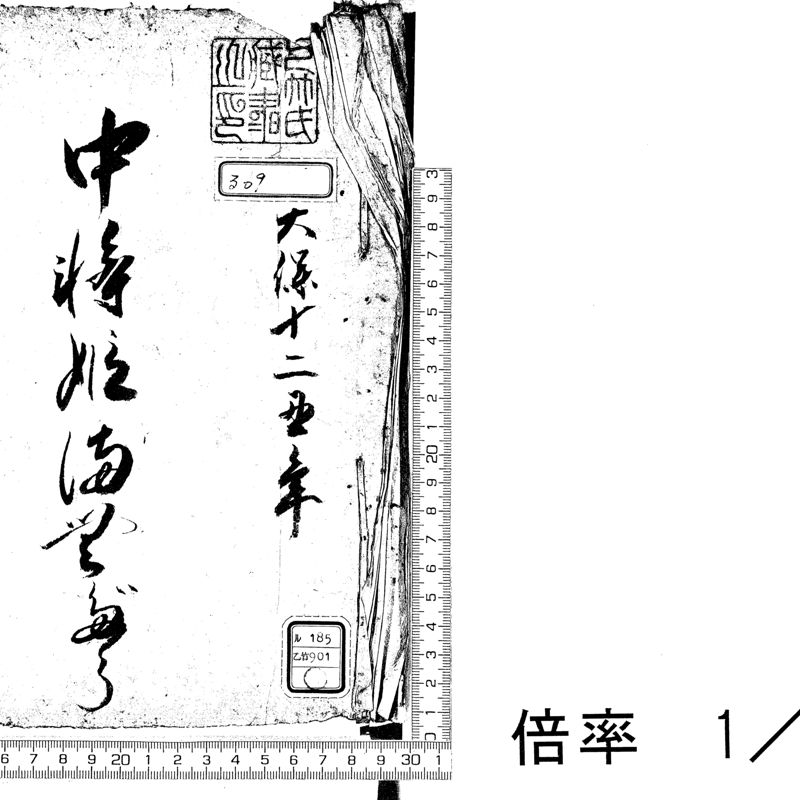 乙竹氏
蔵書
之印
309
天保十二丑年
中将姫満
ル 185
乙竹901
倍率 1／
3 9 8 7 6 5 4 3 2 1 20 9 8 7 6 5 4 3 2 1 10
6 7 8 9 20 1 2 3 4 5 6 7 8 9 30 1